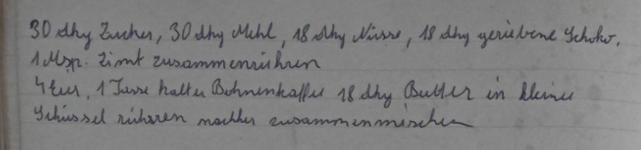 30 dkg Zucker, 30 dkg Mehl, 18 dkg Nüsse, 18 dkg geriebene Schoko,
1 Msp. Zimt zusammenrühren
4 Eier, 1 Tasse kalter Bohnenkaffee 18 dkg Butter in kleiner
Schüssel rühren nachher zusammenmischen